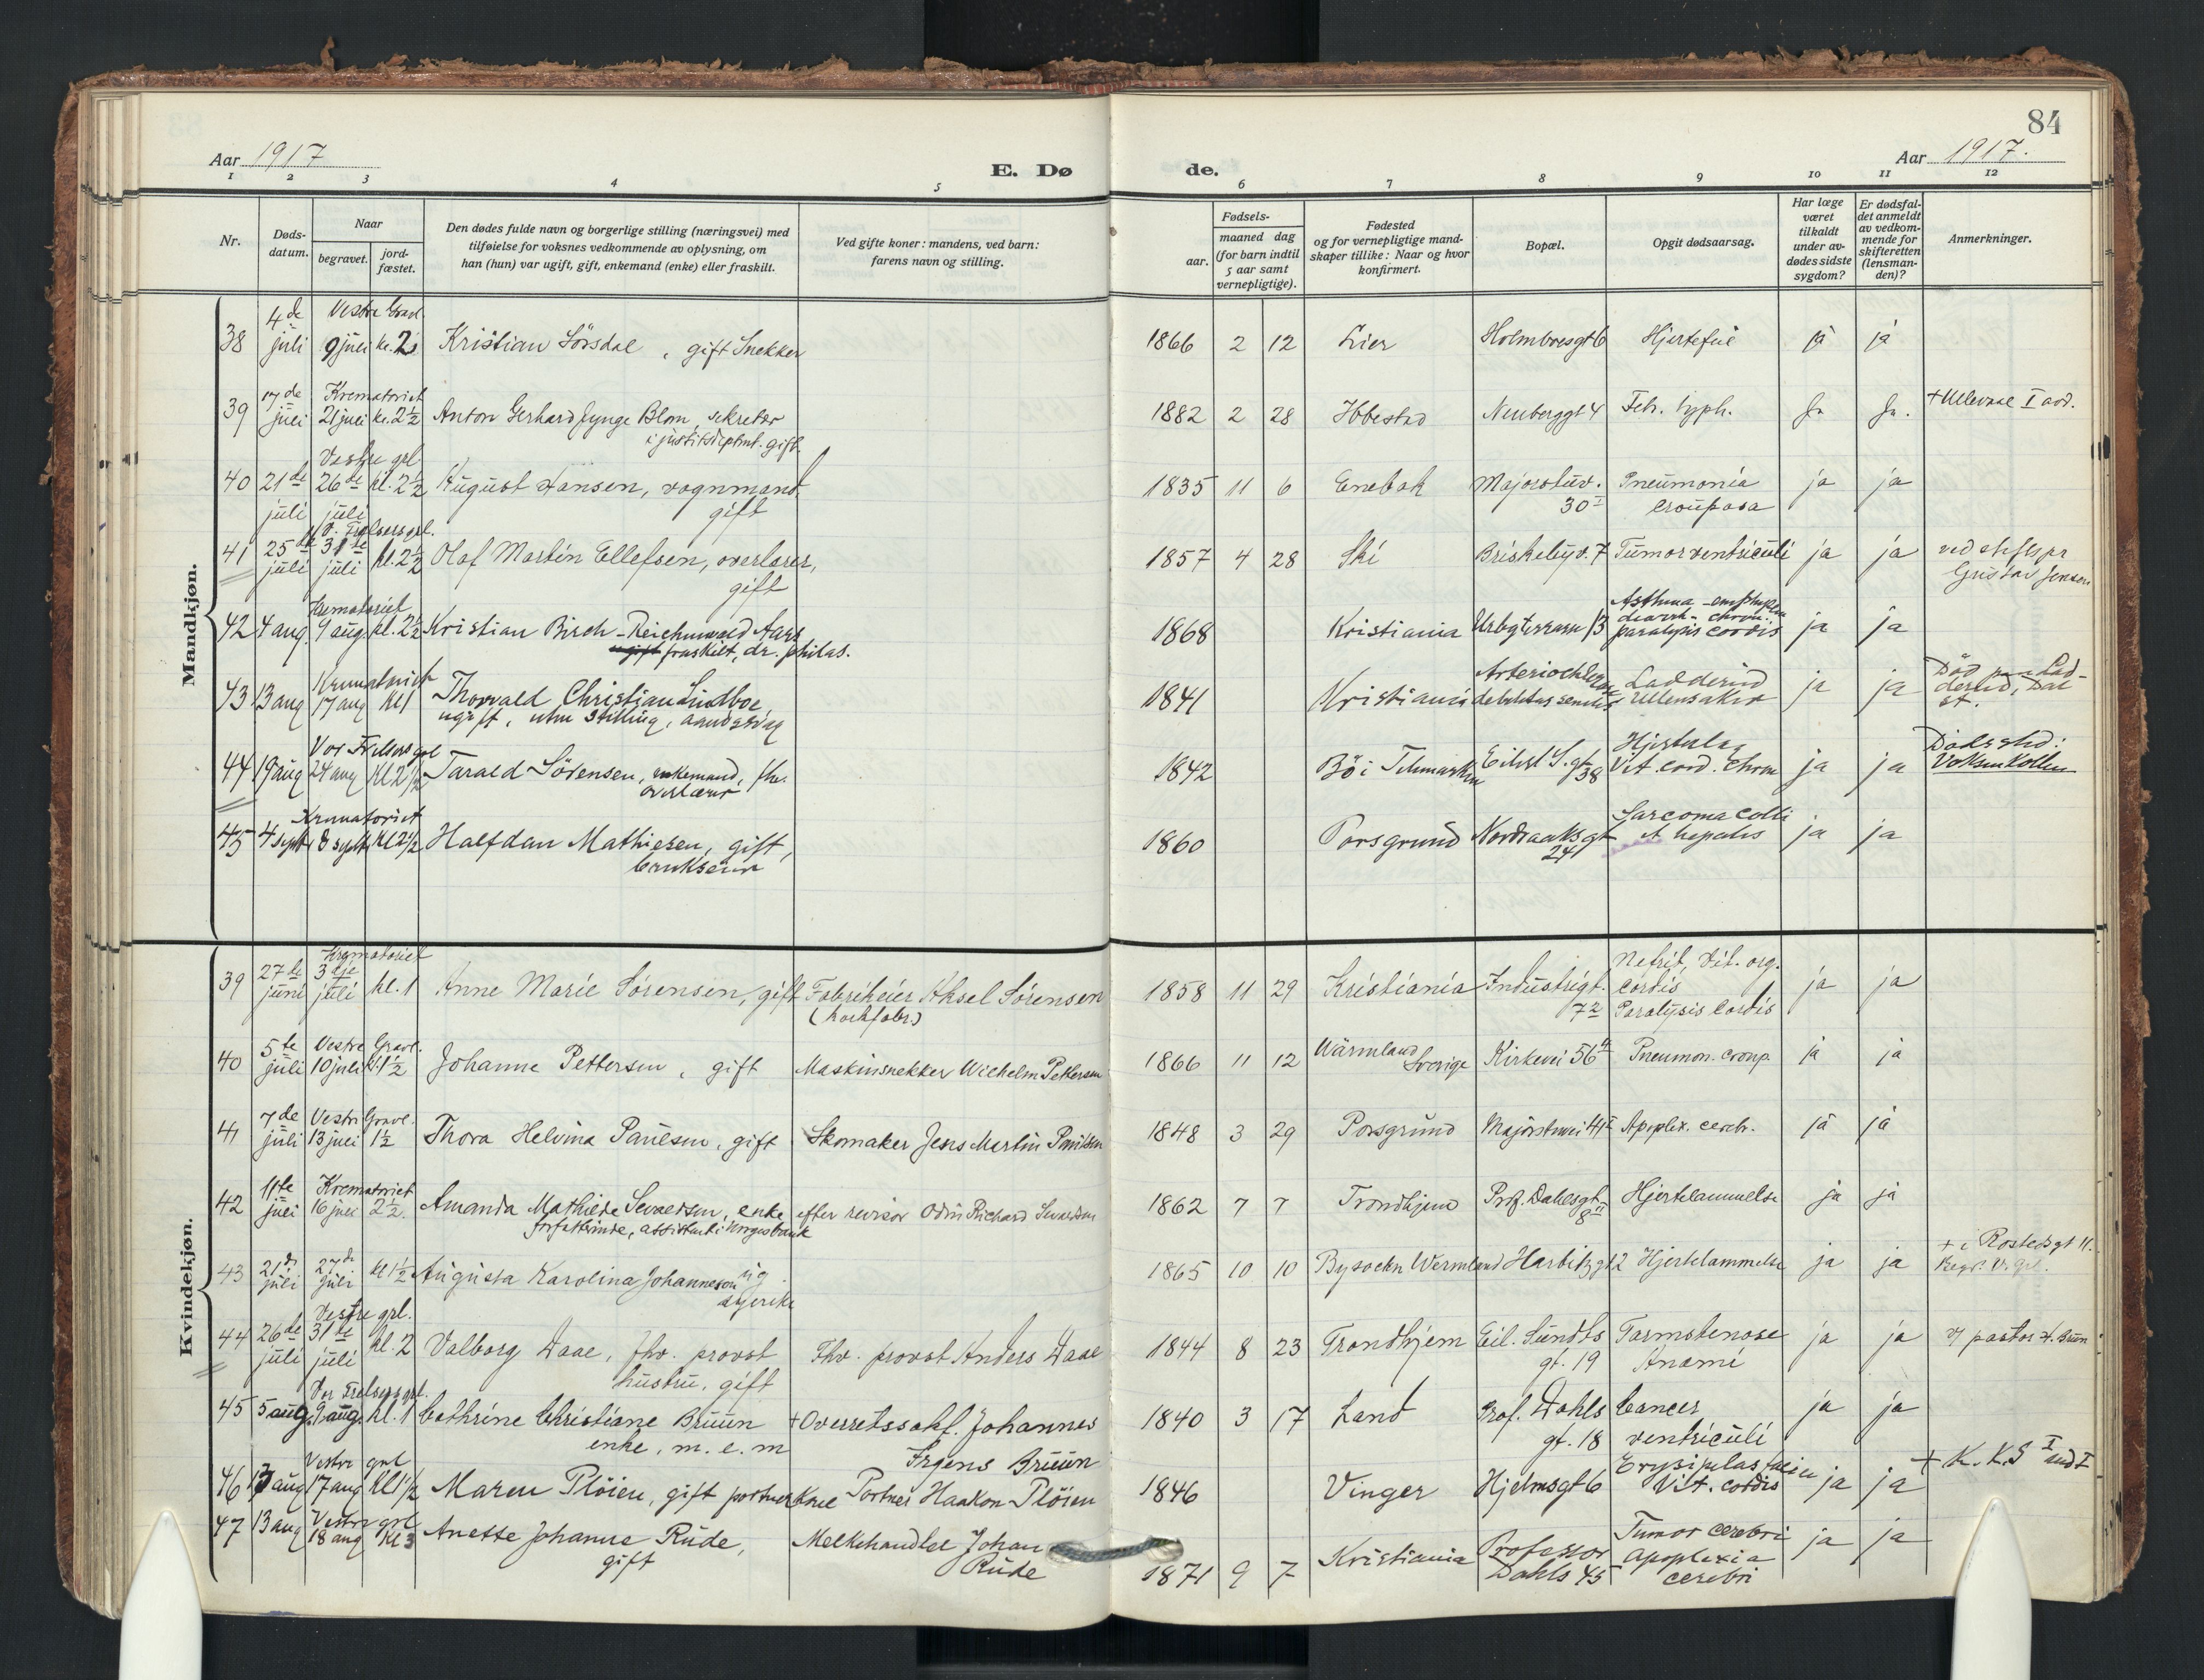 84
Aar 1917
E. Dø
de.
Aar 1917.
1 2 3 4 5 6 7 8 9 10 11 12
Nr.
Døds-
datum.
Naar
begravet.
jord-
fæstet.
Den dødes fulde navn og borgerlige stilling (næringsvei) med
tilføielse for voksnes vedkommende av oplysning, om
han (hun) var ugift, gift, enkemand (enke) eller fraskilt.
Ved gifte koner: mandens, ved barn:
farens navn og stilling.
Fødsels-
aar.
maaned dag
(for barn indtil
5 aar samt
vernepligtige).
Fødested
og for vernepligtige mand-
skaper tillike: Naar og hvor
konfirmert.
Bopæl.
Opgit dødsaarsag.
Har læge
været
tilkaldt
under av-
dødes sidste
sygdom?
Er dødsfal-
det anmeldt
av vedkom-
mende for
skifteretten
(lensman-
den)?
Anmerkninger.
Mandkjøn.
4de Vestre Gravl.
38 juli 9 juli kl. 2 Kristian Sörsdal, gift Snekker 1866 2 12 Lier Hjertefeil ja ja
17de Krematoriet
39 juli 21 juli kl. 2½ Anton Gerhard Jynge Blom, sekretær 1882 2 28 Ibbestad Neuberggt 4 Feb. typh. Ja Ja. + Ullevaal I avd.
i justitsdeptmt. gift.
Vestre grl.
40 21de 26de kl. 2½ August Hansen, vognmand. 1835 11 6 Enebak Majorstuv. Pneumonia ja ja
juli juli gift 30 I crouposa
V. Frelsersgrl.
41 25de 31te kl. 2½ Olaf Martin Ellefsen, overlærer, 1857 4 28 Ski Briskebyv. 7 Tumor ventriculi ja ja ved stiftspr
juli juli gift Gustav Jensen
Krematoriet Asthma - emphysem
42 4 aug. 9 aug. kl. 2½ Kristian Birch-Reichenwald Aars 1868 Kristiania paralysis cordis ja ja
fraskilt, dr. philos.
Krematoriet
43 13 aug 17 aug kl 1 Thorvald Christian Lindboe, 1841 Kristiania debilitas senilis Ladderud ja ja
ugift, uten stilling, aandssvag Ullensaker
Vor Frelsers grl Hjerteslag Dødssted:
44 19 aug 24 aug kl 2½ Tarald Sörensen, enkemand, fhv. 1842 Bö i Telemarken Eilert S. gt 38 Vit. cord. chron ja ja Voksenkollen
overlærer
Krematoriet Sarcoma colli
45 4 sept. 8 sept. kl 2½ Halfdan Mathiesen, gift, 1860 Porsgrund Nordraaksgt et hepatis ja ja
brukseier 24
Kvindekjøn.
Krematoriet Nefrit, Vit. org.
39 27de 3dje kl. 1 Anne Marie Sörensen, gift Fabrikeier Aksel Sörensen 1858 11 29 Kristiania Industrigt. cordis ja ja
juni juli (korkfabr.) Paralysis cordis
5te Vestre Gravl.
40 juli 10 juli kl. 1½ Johanne Pettersen, gift Maskinsnekker Wilhelm Pettersen 1866 11 12 Wärmland Sverige Kirkevei 56 Pneumon. croup. ja ja
7de Vestre Gravl.
41 juli 13 juli 1½ Thora Helvina Paulsen, gift Skomaker Jens Martin Paulsen 1848 3 29 Porsgrund Majorstuvei 41 Apoplex. cerebr. ja ja
11te Krematoriet
42 juli 16 juli 2½. Amanda Mathilde Sevaldsen, enke efter revisor Odin Richard Sevaldsen 1862 7 7 Trondhjem Prof. Dahlsgt. 8 Hjertelammelse ja ja
forfatterinde, assistent i Norgesbank
+ i Rostedsgt 11.
43 21de 27de kl 1½ Augusta Karolina Johannesson ug. 1865 10 10 Bysochn Wermland Harbitzgt 2 Hjertelammelse ja ja Begr. V. grl.
juli juli syerske
Vestre grl.
44 26de 31te kl. 2 Valborg Daae, fhv. provst Fhv. provst Anders Daae 1844 8 23 Trondhjem Eil. Sundts Tarmstenose ja ja v/ pastor H. Bruun
juli juli hustru, gift gt. 19 Anæmi
Vor Frelsers grl.
45 5 aug. 9 aug. kl. 1 Cathrine Christiane Bruun + Overretssakf. Johannes 1840 3 17 Land Prof. Dahls Cancer ja ja
enke, m. e. m Irgens Bruun gt. 18 ventriculi
Vestre grl
46 13 aug 17 aug kl 1½ Maren Plöien, gift portnerkone Portner Haakon Plöien 1846 Vinger Hjelmsgt 6 Vit. cordis ja ja + K. K. S I
Vestre grl Tumor cerebri
47 13 aug 18 aug kl 3 Anette Johanne Rude, Melkehandler Johan 1871 9 7 Kristiania Professor Apoplexia ja ja
gift Rude Dahls 45 cerebri